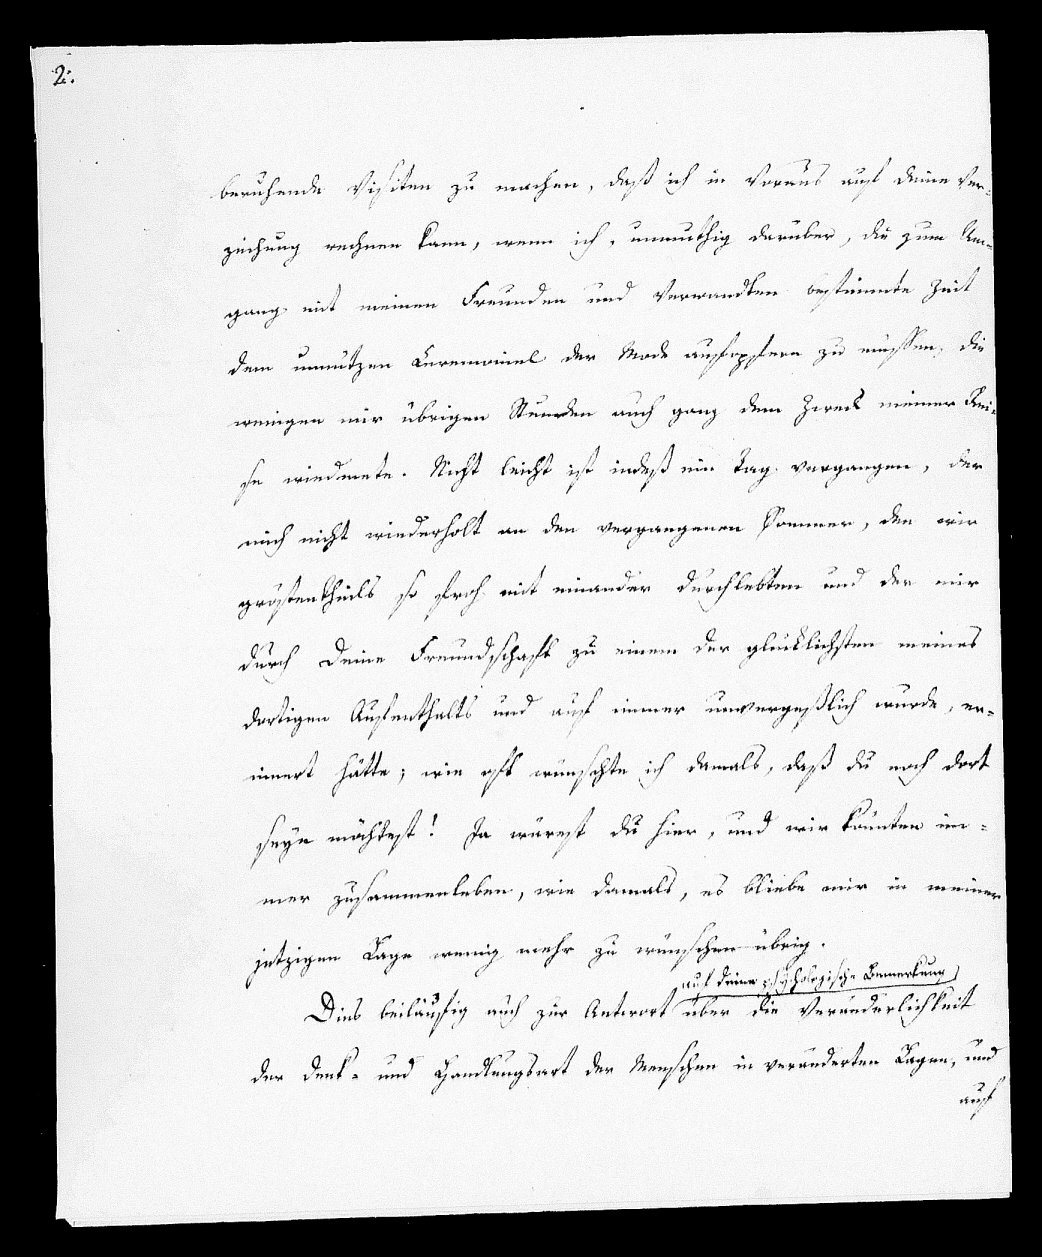 2.
beruhende Visiten zu machen, daß ich in Voraus auf deine Ver-
zeihung rechnen kann, wenn ich, unmuthig darüber, die zum Um-
gang mit meinen Freunden und Verwandten bestimmte Zeit
dem unnützen Ceremoniel der Mode aufopfern zu müssen, die
wenigen mir übrigen Stunden auch ganz dem Zweck meiner Rei-
se wiedmete. Nicht leicht ist indeß ein Tag vergangen, der
mich nicht wiederholt an den vergangenen Sommer, den wir
gröstentheils so froh mit einander durchlebten und der mir
durch Deine Freundschaft zu einem der glücklichsten meines
dortigen Aufenthalts und auf immer unvergeßlich wurde, er-
innert hätte; wie oft wünschte ich damals, daß du noch dort
seyn möchtest! Ja wärest du hier, und wir könnten im-
mer zusammenleben, wie damals, es bliebe mir in meiner
jetzigen Lage wenig mehr zu wünschen übrig.
auf deine psychologische Bemerkung
Dies beiläufig auch zur Antwort über die Veränderlichkeit
der Denk- und Handlungsart der Menschen in veränderten Lagen, und
auf